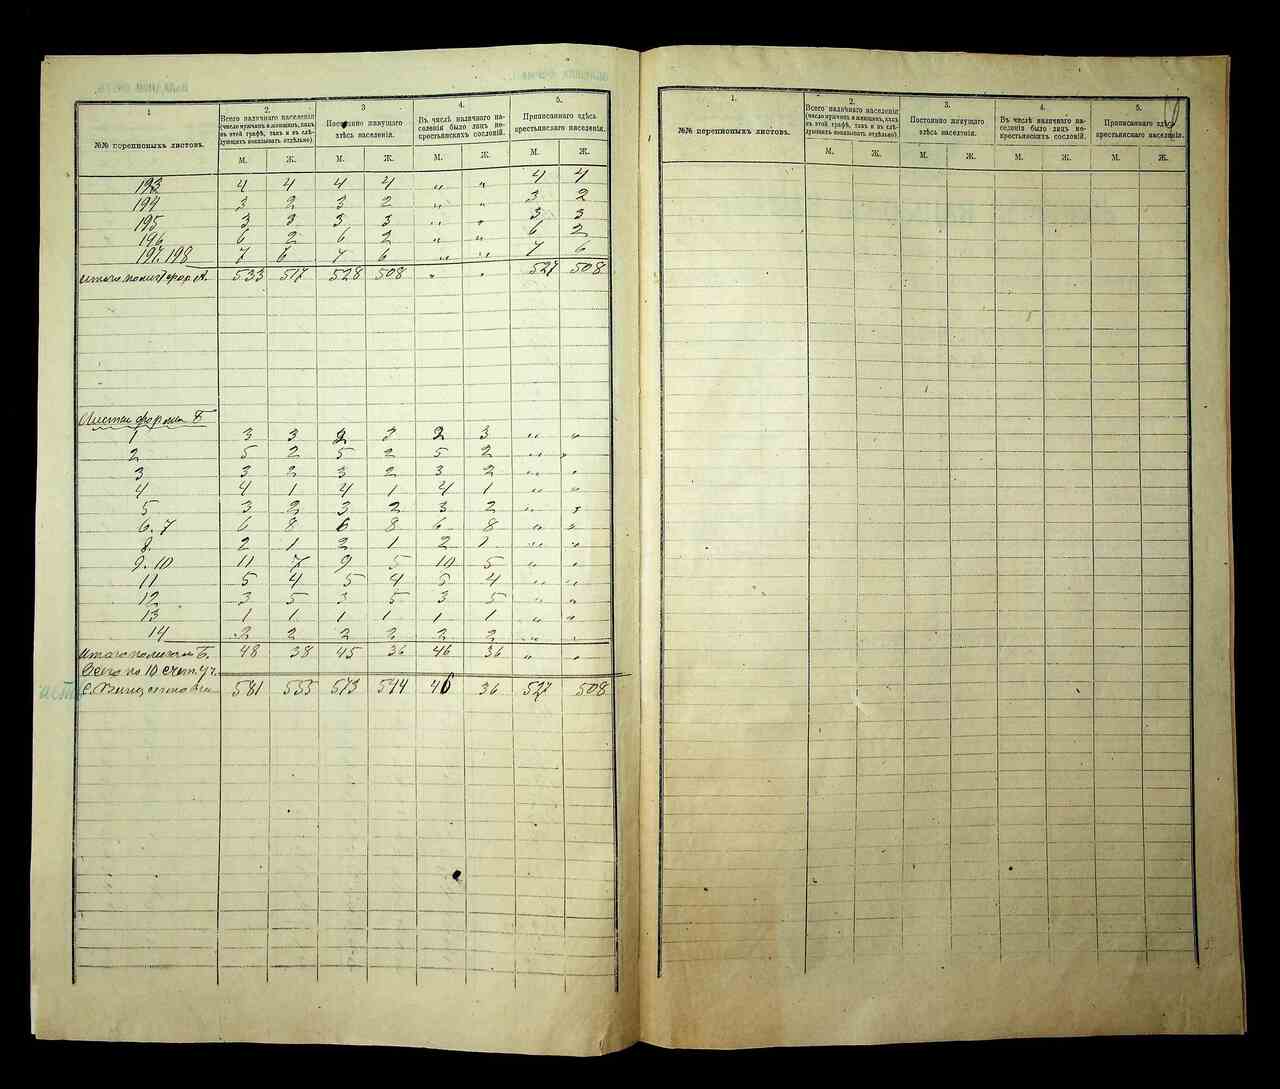 1 2. 3 4. 5.
№№ переписныхъ листовъ.
Всего наличнаго населенія (число мужчинъ и женщинъ, какъ въ этой графѣ, такъ и въ слѣдующихъ показывать отдѣльно)
Постоянно живущаго здѣсь населенія.
Въ числѣ наличнаго населенія было лицъ некрестьянскихъ сословій.
Приписаннаго здѣсь крестьянскаго населенія.
М. Ж. М. Ж. М. Ж. М. Ж.
193 4 4 4 4 " " 4 4
194 3 2 3 2 " " 3 2
195 3 3 3 3 " " 3 3
196 6 2 6 2 " " 6 2
197. 198 7 6 7 6 " " 7 6
Итого по лист фор. А. 533 517 528 508 " " 527 508
Листы формы Б
1 3 3 2 3 3 " "
2 5 2 5 2 5 2 " "
3 3 2 3 2 3 2 " "
4 4 1 4 1 4 1 " "
5 3 2 3 2 3 2 " "
6. 7 6 8 6 8 6 8 " "
8. 2 1 2 1 2 1 " "
9. 10 11 7 9 5 10 5 " "
11 5 4 5 4 5 4 " "
12 3 5 3 5 3 5 " "
13 1 1 1 1 1 1 " "
14 2 2 2 2 2 2 " "
Итого по лист. Б. 48 38 45 36 46 36 " "
Всего по 10 счет. уч.
581 555 573 544 46 36 527 508
1. 2. 3. 4. 5.
№№ переписныхъ листовъ.
Всего наличнаго населенія (число мужчинъ и женщинъ, какъ въ этой графѣ, такъ и въ слѣдующихъ показывать отдѣльно)
Постоянно живущаго здѣсь населенія.
Въ числѣ наличнаго населенія было лицъ некрестьянскихъ сословій.
Приписаннаго здѣсь крестьянскаго населенія.
М. Ж. М. Ж. М. Ж. М. Ж.